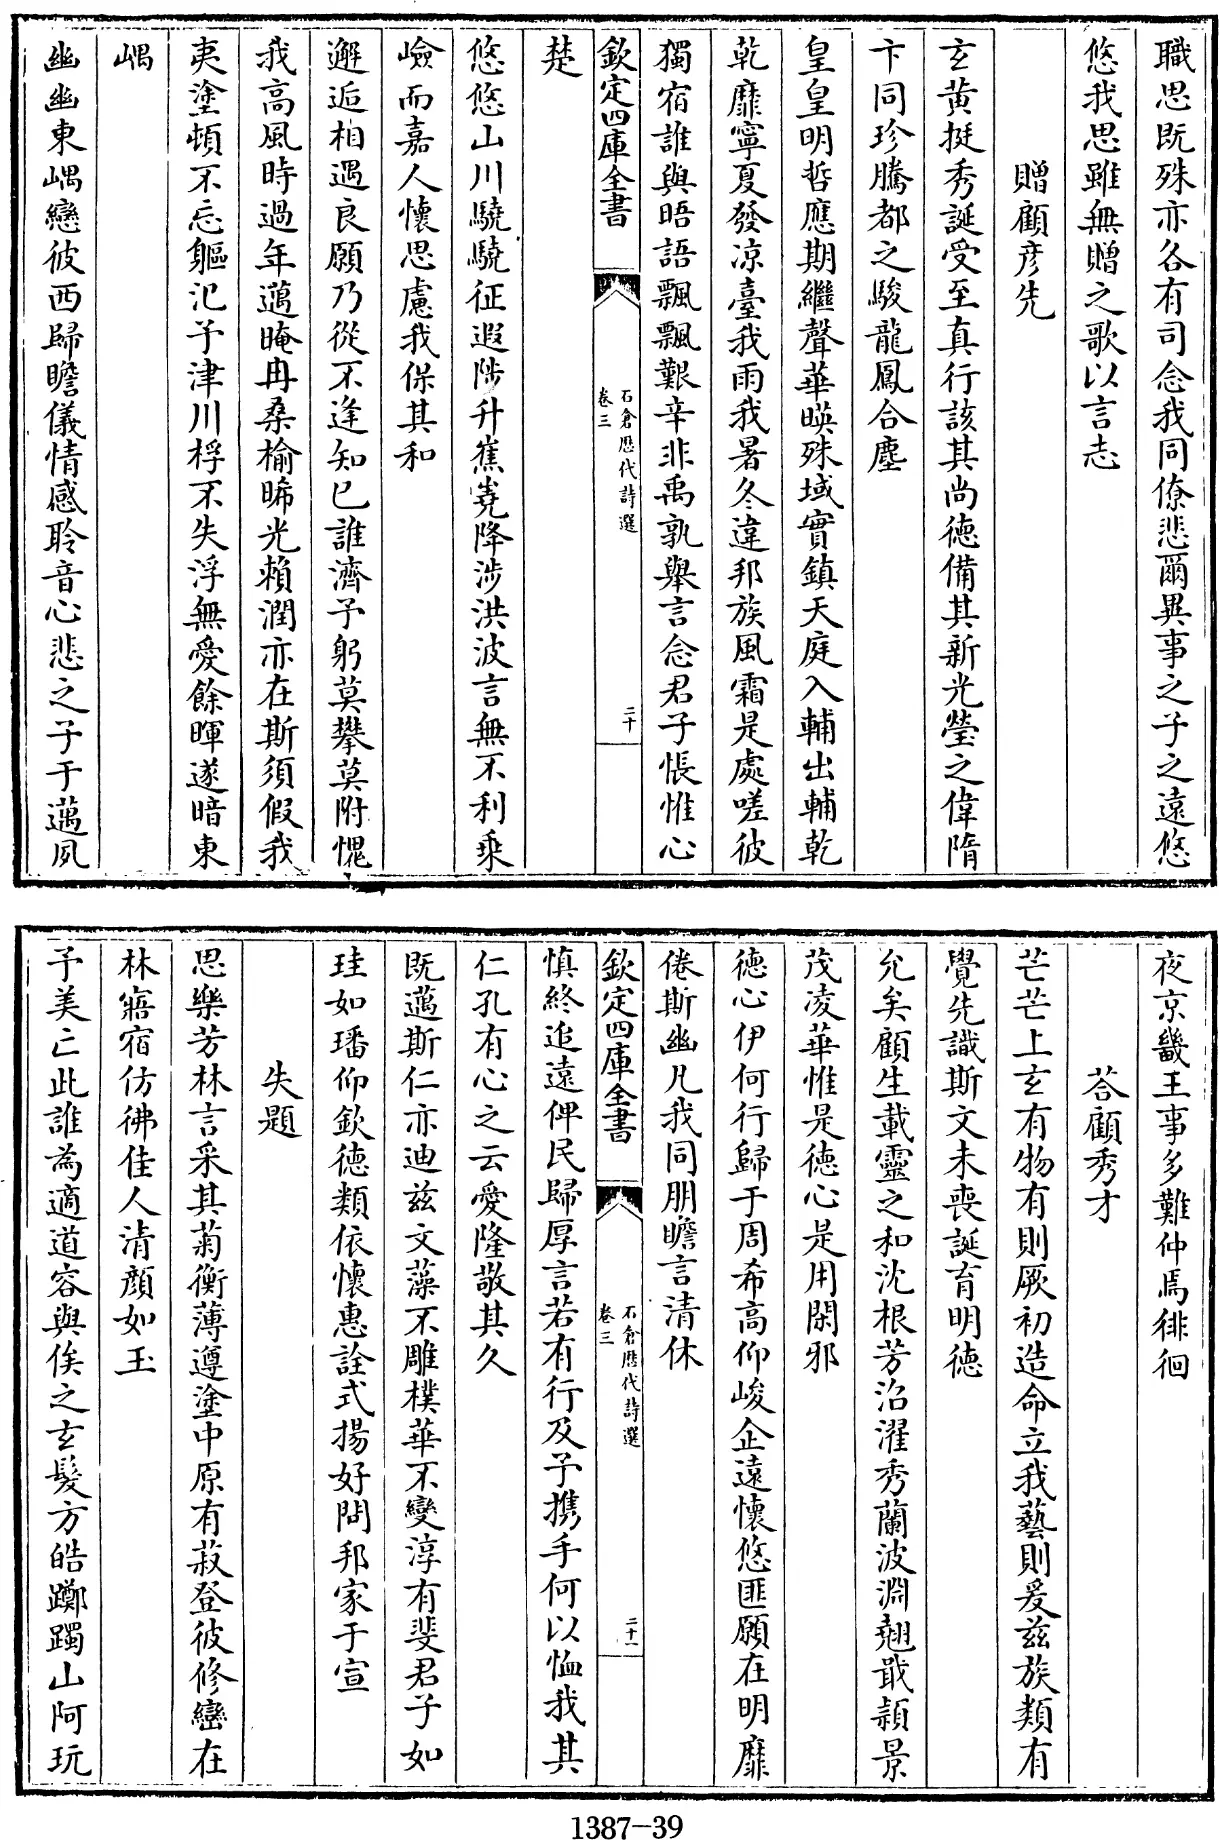 職思既殊亦各有司念我同僚悲爾異事之子之遠悠
悠我思雖無贈之歌以言志
贈顧彦先
玄黄挺秀誕受至真行該其尚德備其新光瑩之偉隋
卞同珍騰都之駿龍鳳合塵
皇皇明哲應期繼聲華暎殊域實鎮天庭入輔出輔乾
乾靡寧夏發凉臺我雨我暑冬違邦族風霜是處嗟彼
獨宿誰與晤語飄飄艱辛非禹孰舉言念君子悵惟心
欽定四庫全書
石倉歴代詩選
卷三
二十
楚
悠悠山川驍驍征遐陟升嶣嶢降涉洪波言無不利乘
嶮而嘉人懷思慮我保其和
邂逅相遇良願乃從不逢知已誰濟予躬莫攀莫附愧
我高風時過年邁晻冉桑榆晞光賴潤亦在斯須假我
夷塗頓不忘軀氾予津川桴不失浮無愛餘暉遂暗東
嵎
幽幽東嵎戀彼西歸瞻儀情感聆音心悲之子于邁夙
夜京畿王事多難仲焉徘徊
荅顧秀才
芒芒上玄有物有則厥初造命立我藝則爰兹族類有
覺先識斯文未喪誕育明德
允矣顧生載靈之和沈根芳沼濯秀蘭波淵翹戢頴景
茂凌華惟是德心是用閑邪
德心伊何行歸于周希高仰峻企遠懷悠匪願在明靡
倦斯幽凡我同朋瞻言清休
欽定四庫全書
石倉歴代詩選
卷三
二十一
慎終追遠俾民歸厚言若有行及予携手何以恤我其
仁孔有心之云愛隆敬其久
既邁斯仁亦迪兹文藻不雕樸華不變淳有斐君子如
珪如璠仰欽德類依懷惠詮式揚好問邦家于宣
失題
思樂芳林言采其菊衡薄遵塗中原有菽登彼修巒在
林寤宿仿彿佳人清顔如玉
予美亡此誰為適道容與俟之玄髮方皓躑躅山阿玩
1387—39